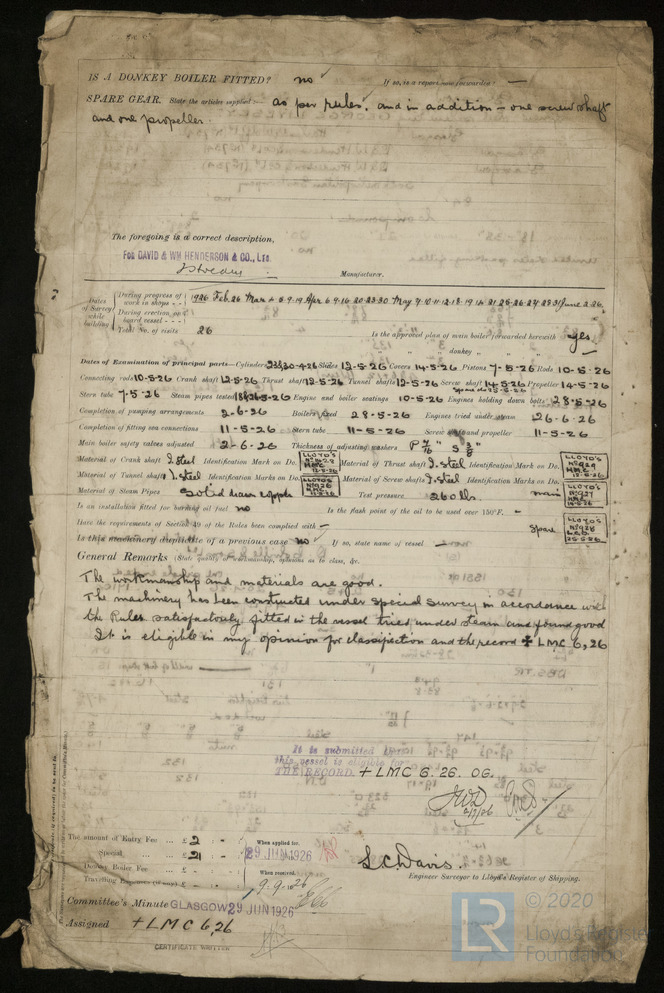 IS A DONKEY BOILER FITTED? no ✓ If so, is a report now forwarded? —
SPARE GEAR. State the articles supplied:— as per rules, and in addition — one screw shaft
and one propeller.
The foregoing is a correct description,
FOR DAVID & WM HENDERSON & CO., LTD.
Manufacturer.
Dates of Survey while building
During progress of work in shops - - 1926 Feb. 26 Mar 4 6 9 19 Apr 6 9 16 20 23 30 May 7 10 11 12 18 19 21 25 26 27 28 31 June 2. 26.
During erection on board vessel - - -
Total No. of visits 26
Is the approved plan of main boiler forwarded herewith yes
" " " donkey " " "
Dates of Examination of principal parts—Cylinders 30-4-26 Slides 12-5-26 Covers 14-5-26 Pistons 7-5-26 Rods 10-5-26
Connecting rods 10-5-26 Crank shaft 12-5-26 Thrust shaft 12-5-26 Tunnel shafts 12-5-26 Screw shaft 14-5-26 Propeller 14-5-26
Stern tube 7-5-26 Steam pipes tested Engine and boiler seatings 10-5-26 Engines holding down bolts 28-5-26
Completion of pumping arrangements 2-6-26 Boilers fixed 28-5-26 Engines tried under steam 26-6-26
Completion of fitting sea connections 11-5-26 Stern tube 11-5-26 Screw shaft and propeller 11-5-26
Main boiler safety valves adjusted 2-6-26 Thickness of adjusting washers P 7/16 S 3/8
Material of Crank shaft I. Steel Identification Mark on Do. LLOYD'S Material of Thrust shaft I. steel Identification Mark on Do. LLOYD'S
Material of Tunnel shafts I. steel Identification Marks on Do. LLOYD'S Material of Screw shafts I. steel Identification Marks on Do. LLOYD'S
Material of Steam Pipes Solid drawn copper Test pressure 360 lbs. main
Is an installation fitted for burning oil fuel no Is the flash point of the oil to be used over 150°F. –
Have the requirements of Section 49 of the Rules been complied with – spare LLOYD'S
Is this machinery duplicate of a previous case no ✓ If so, state name of vessel —
General Remarks (State quality of workmanship, opinions as to class, &c.
The workmanship and materials are good.
The machinery has been constructed under special survey in accordance with
the Rules satisfactorily fitted in the vessel tried under steam and found good
It is eligible in my opinion for classification and the record + LMC 6,26
It is submitted that
this vessel is eligible for
THE RECORD. + LMC 6.26. OG.
The amount of Entry Fee ... £ 2
Special ... £ 21
Donkey Boiler Fee ... £
Travelling Expenses (if any) £
When applied for,
29 JUN 1926
When received,
9.9.26
S.C. Davis.
Engineer Surveyor to Lloyd's Register of Shipping.
Committee's Minute GLASGOW 29 JUN 1926
Assigned + LMC 6,26
CERTIFICATE WRITTEN
© 2020
Lloyd's Register
Foundation
LR